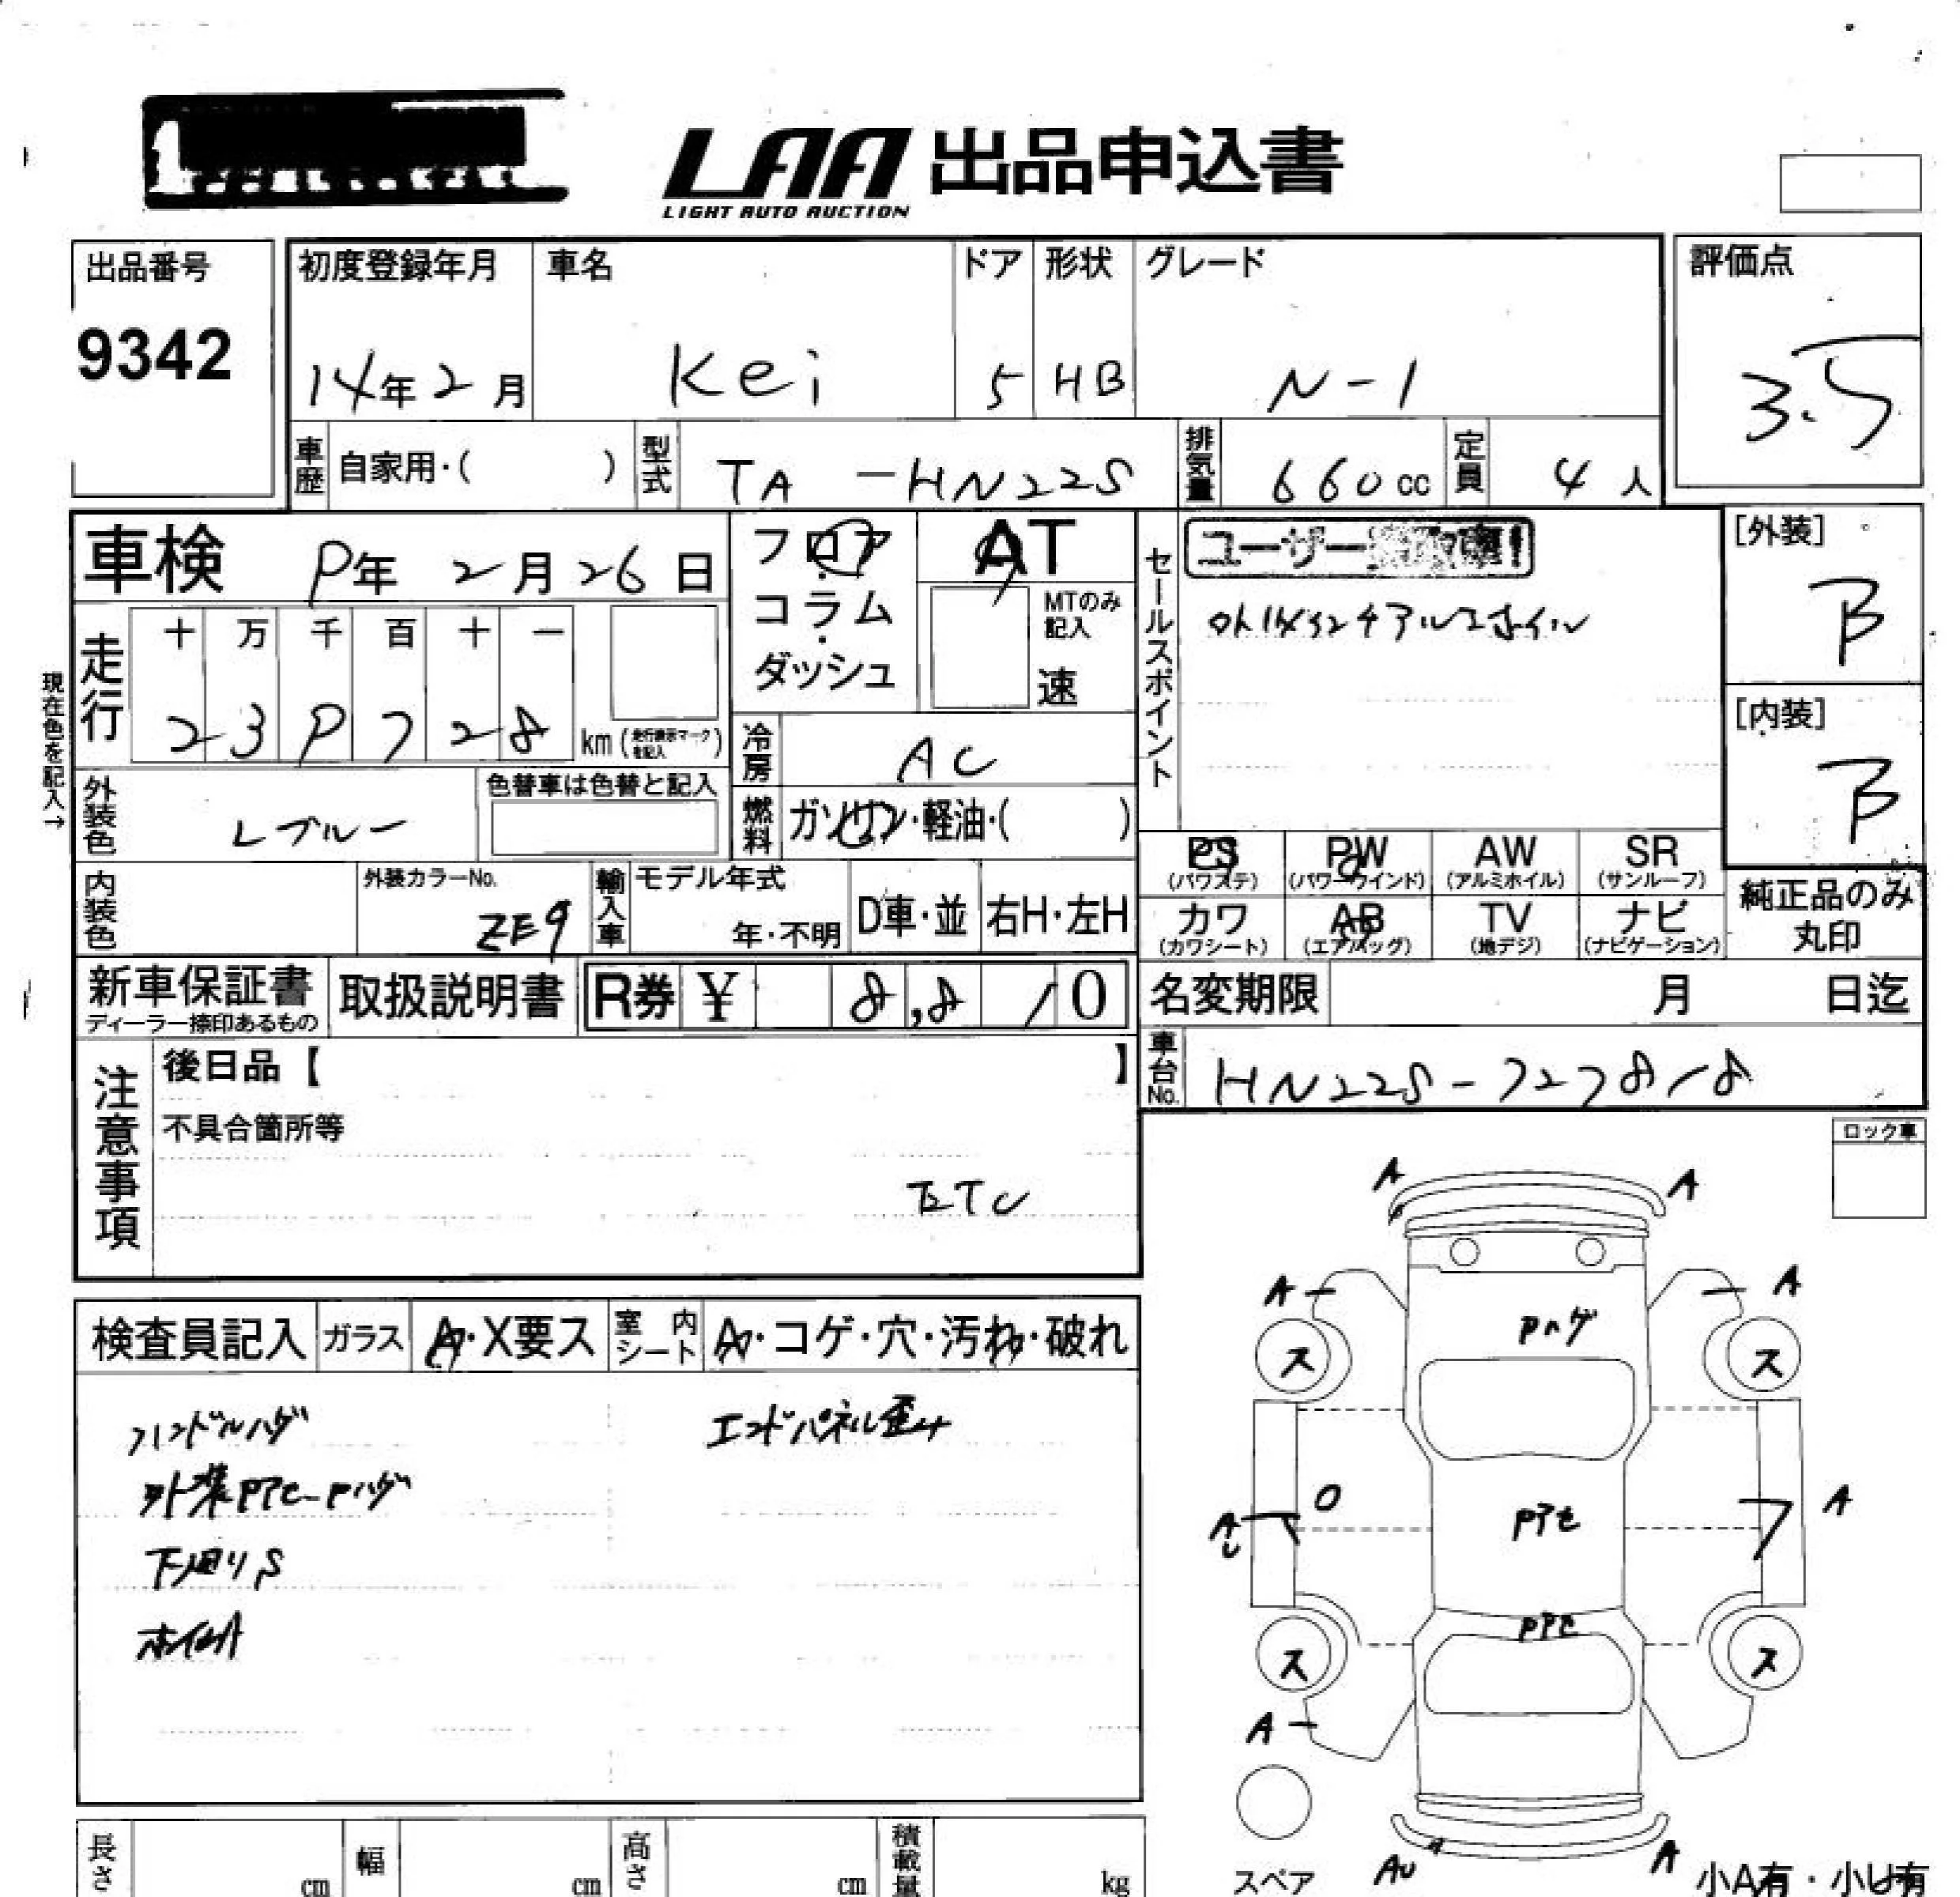 LAA 出品申込書
LIGHT AUTO AUCTION
出品番号
9342
初度登録年月
14年2月
車名
Kei
ドア
5
形状
HB
グレード
N-1
評価点
3.5
車歴 自家用・( )
型式 TA-HN22S
排気量 660cc
定員 4人
車検 9年2月26日
フロア・コラム・ダッシュ
AT
MTのみ記入
速
セールスポイント
ユーザー
アルミホイル
[外装]
B
[内装]
B
現在色を記入→
走行
十 万 千 百 十 一
2 3 9 7 2 8 km (走行表示マークを記入)
冷房 AC
燃料 ガソリン・軽油・( )
外装色 Lブルー
色替車は色替と記入
内装色
外装カラーNo.
ZE9
輸入車
モデル年式
年・不明
D車・並
右H・左H
PS (パワステ)
PW (パワーウインド)
AW (アルミホイル)
SR (サンルーフ)
カワ (カワシート)
AB (エアバッグ)
TV (地デジ)
ナビ (ナビゲーション)
純正品のみ丸印
新車保証書
ディーラー捺印あるもの
取扱説明書
R券 ¥ 8,810
名変期限 月 日迄
車台No. HN22S-727818
注意事項
後日品【 】
不具合箇所等
ETC
ロック車
検査員記入
ガラス A・X要ス
室内シート A・コゲ・穴・汚れ・破れ
ハンドルハゲ
エンドパネル歪み
外装Pアセ Pハゲ
下廻りS
ホイルA
A A
A A
Pハゲ
ス ス
O
A
Pアセ
A
Pアセ
ス ス
A
スペア
AU
A
小A有・小U有
長さ cm
幅 cm
高さ cm
積載量 kg